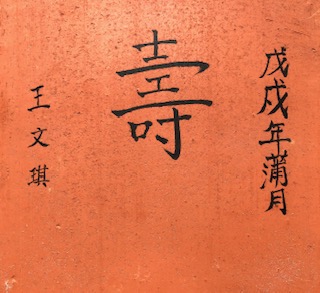 戊戌年蒲月
壽
王文琪